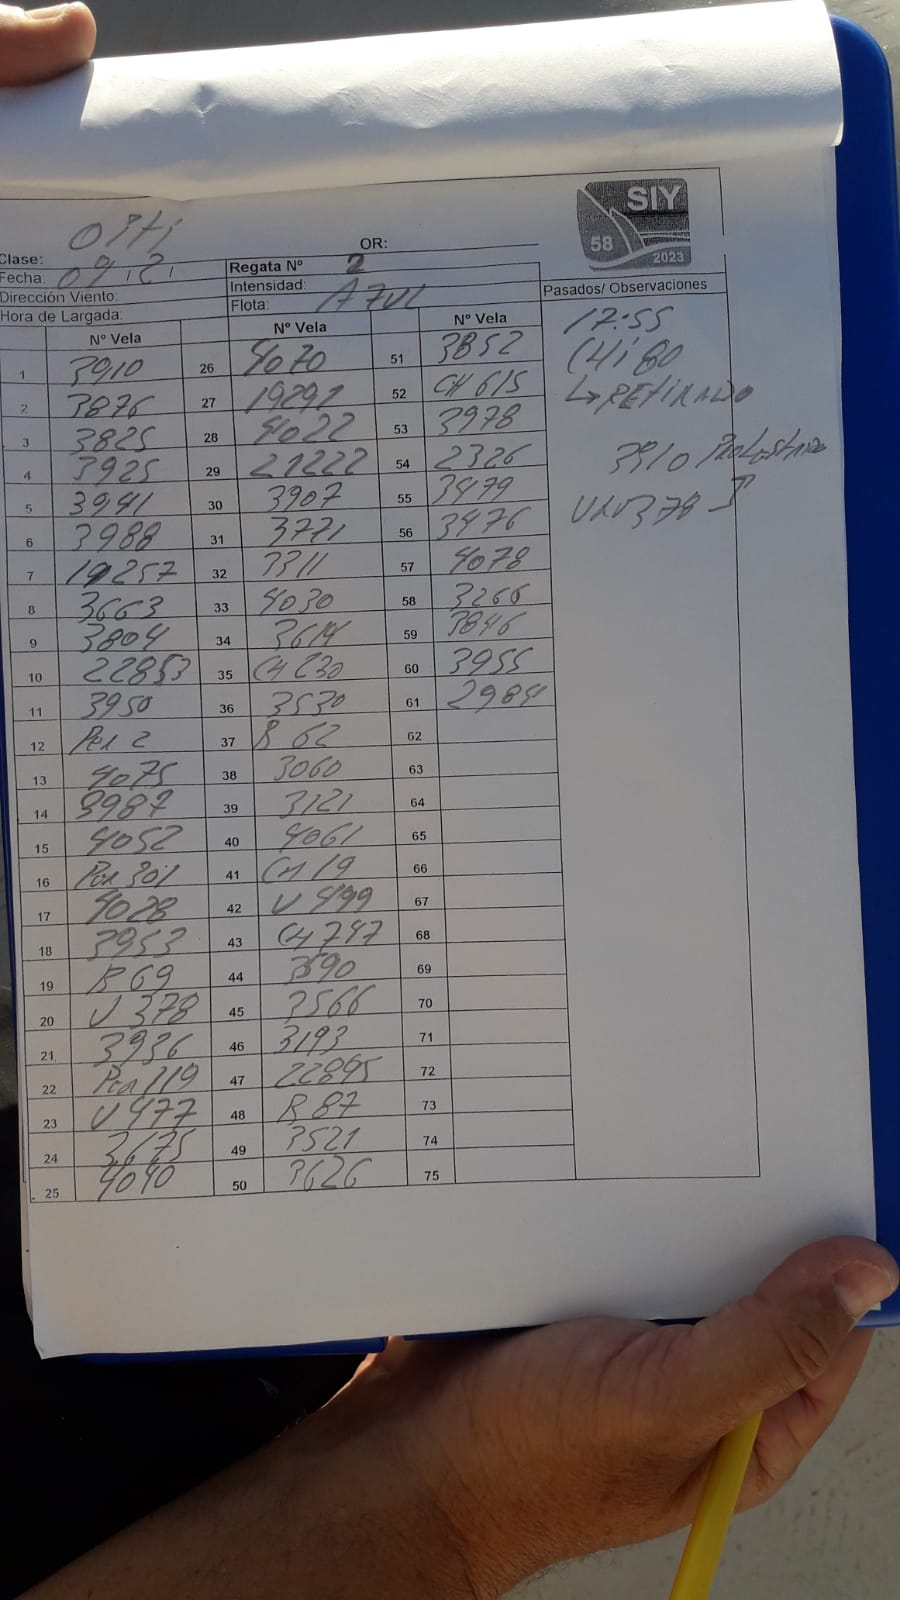 SIY
58
2023
Clase: OPTI
OR:
Fecha: 09.2.
Regata Nº 2
Dirección Viento:
Intensidad:
Hora de Largada:
Flota: AZUL
Pasados/ Observaciones
Nº Vela Nº Vela Nº Vela
1 3910 26 4070 51 3852
2 3876 27 19291 52 CH 615
3 3825 28 4022 53 3978
4 3925 29 21222 54 2326
5 3941 30 3907 55 3479
6 3988 31 3771 56 3476
7 19257 32 3311 57 4078
8 3663 33 4030 58 3266
9 3804 34 3614 59 3846
10 22853 35 CH 230 60 3955
11 3950 36 3530 61 2984
12 Per 2 37 B 62 62
13 4075 38 3060 63
14 3987 39 3121 64
15 4052 40 4061 65
16 Per 301 41 CH 19 66
17 4028 42 U 499 67
18 3953 43 CH 747 68
19 B 69 44 3590 69
20 U 378 45 3566 70
21 3936 46 3193 71
22 Per 119 47 22895 72
23 U 477 48 B 87 73
24 3675 49 3521 74
25 4040 50 3626 75
17:55
CHI 80
↳ RETIRADO
3910
URU 378